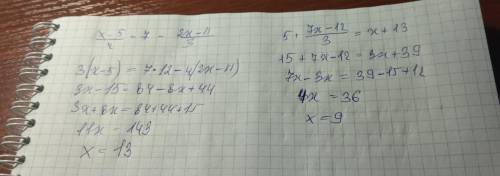 x-5/4 - 7 - 2x-11/3
3(x-5) = 7·12-4(2x-11)
3x-15 - 84-8x+44
3x+8x = 84+44+15
11x - 143
x = 13
5 + 7x-12/3 = x+13
15+7x-12 = 3x+39
7x-3x = 39-15+12
4x = 36
x = 9